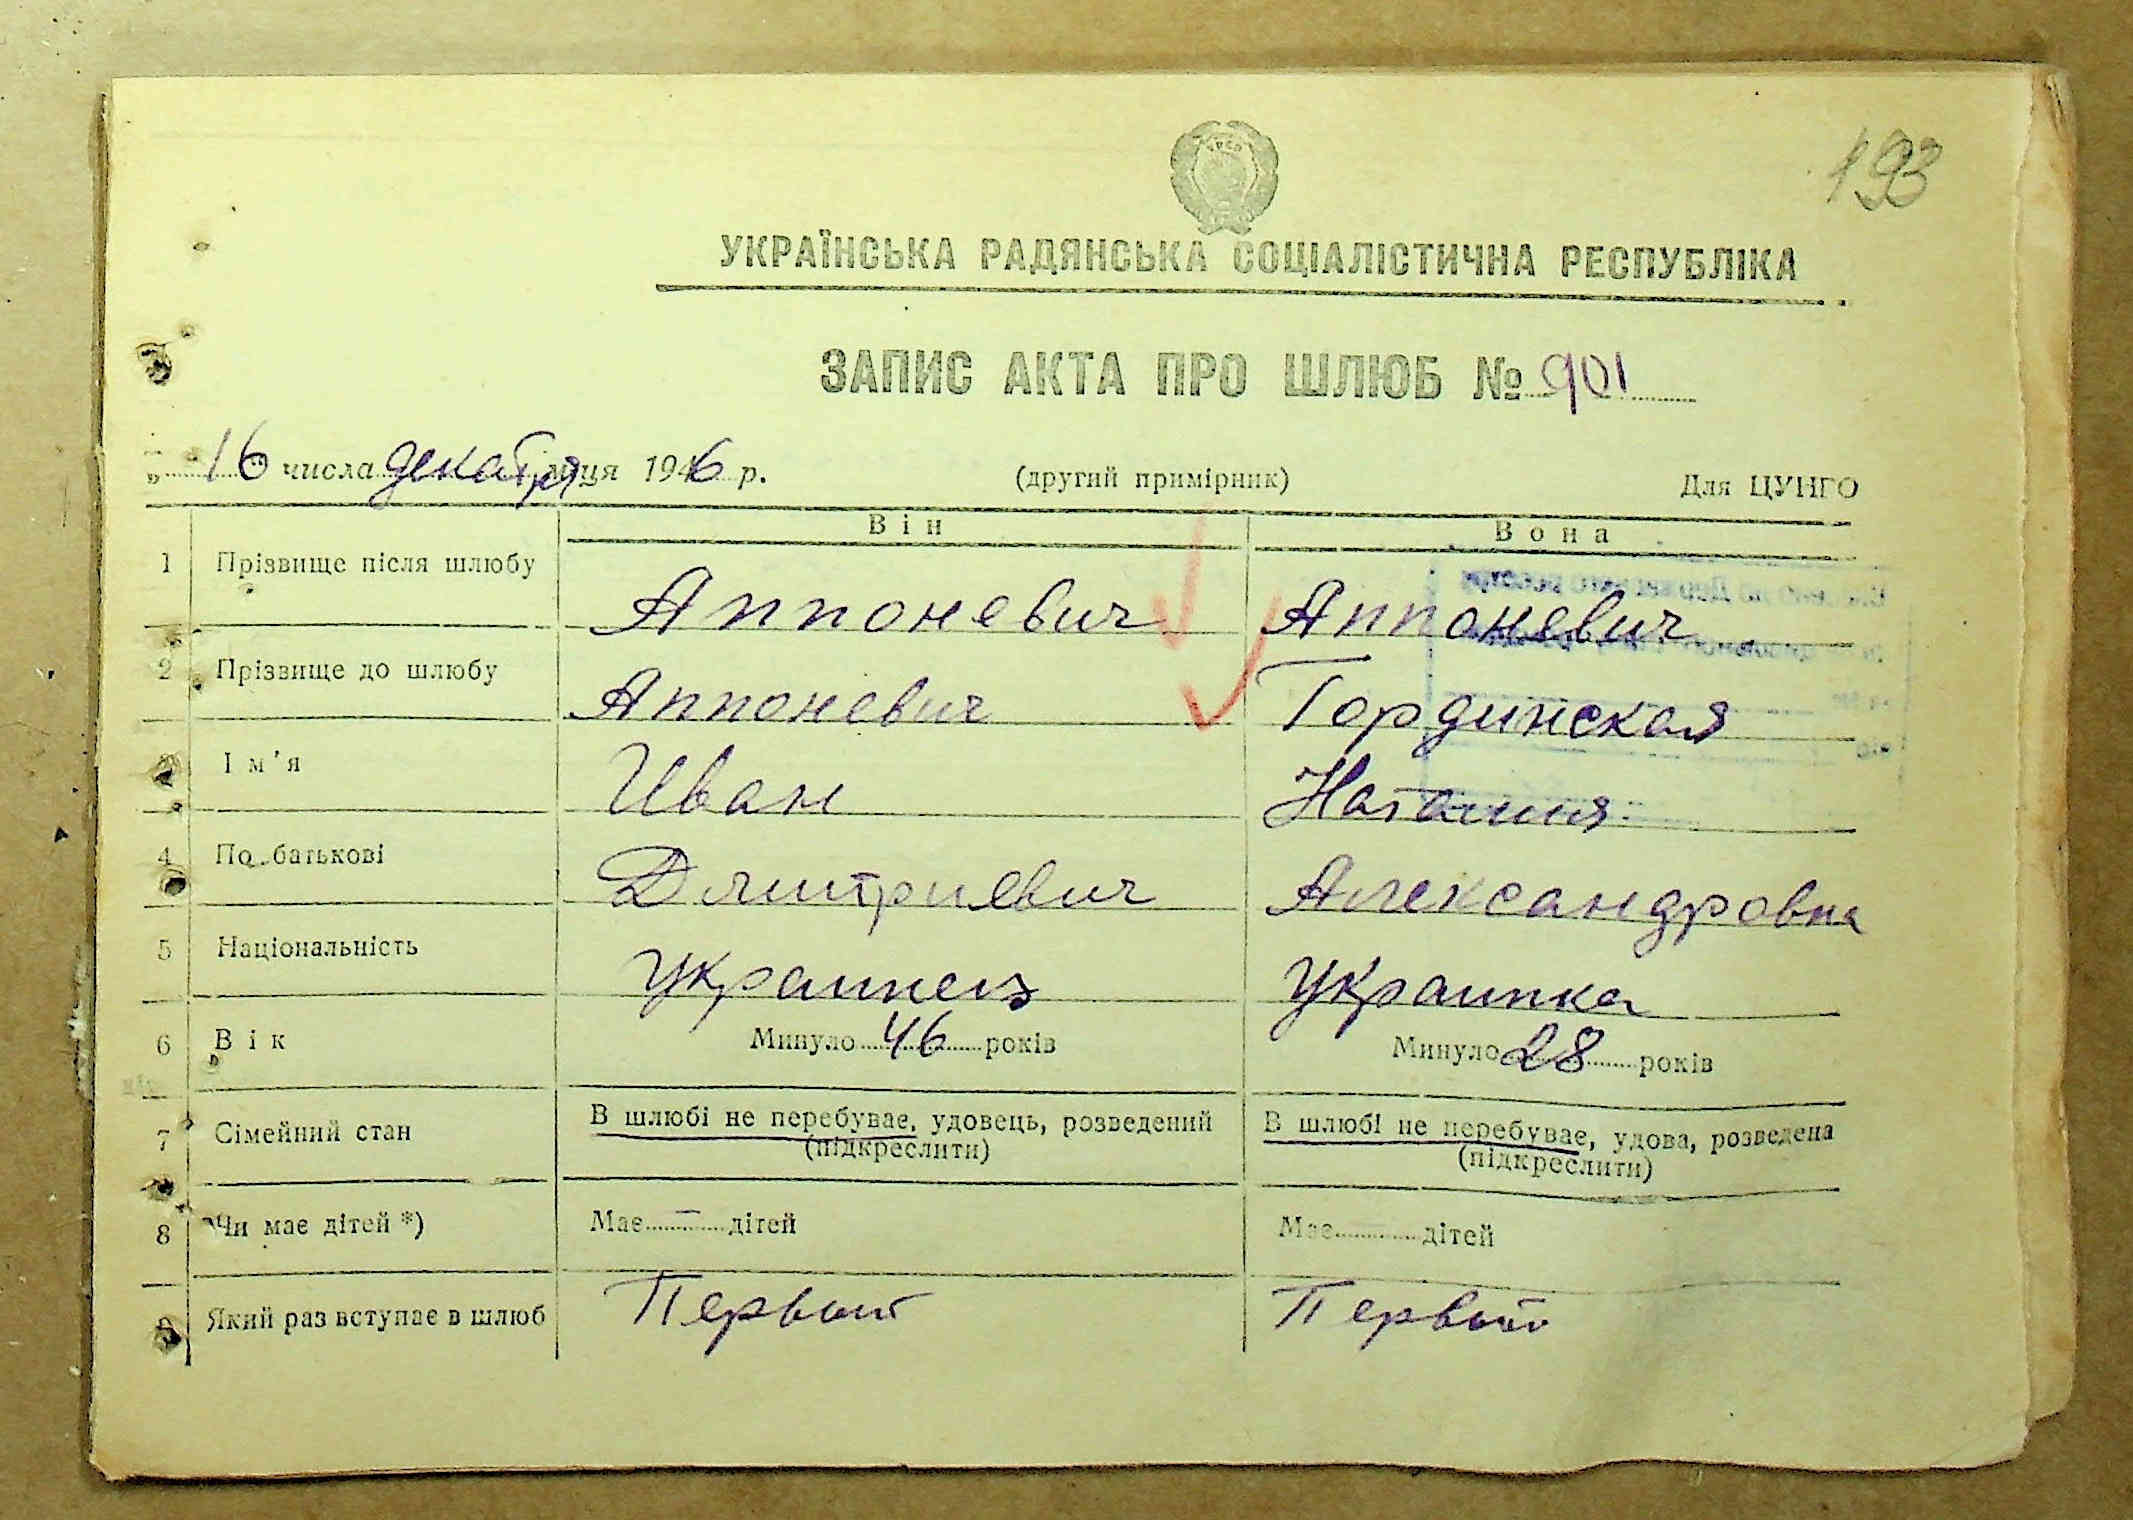 193
УКРАЇНСЬКА РАДЯНСЬКА СОЦІАЛІСТИЧНА РЕСПУБЛІКА
ЗАПИС АКТА ПРО ШЛЮБ № 901
„16" числа декабря м-ця 1946 р. (другий примірник) Для ЦУНГО
Він Вона
1 Прізвище після шлюбу Аппоневич Аппоневич
2 Прізвище до шлюбу Аппоневич Гординская
3 Ім'я Иван Наталия
4 По батькові Дмитриевич Александровна
5 Національність Украинец Украинка
6 Вік Минуло 46 років Минуло 28 років
7 Сімейний стан В шлюбі не перебуває, удовець, розведений В шлюбі не перебуває, удова, розведена
(підкреслити) (підкреслити)
8 Чи має дітей *) Має — дітей Має дітей
9 Який раз вступає в шлюб Первый Первый